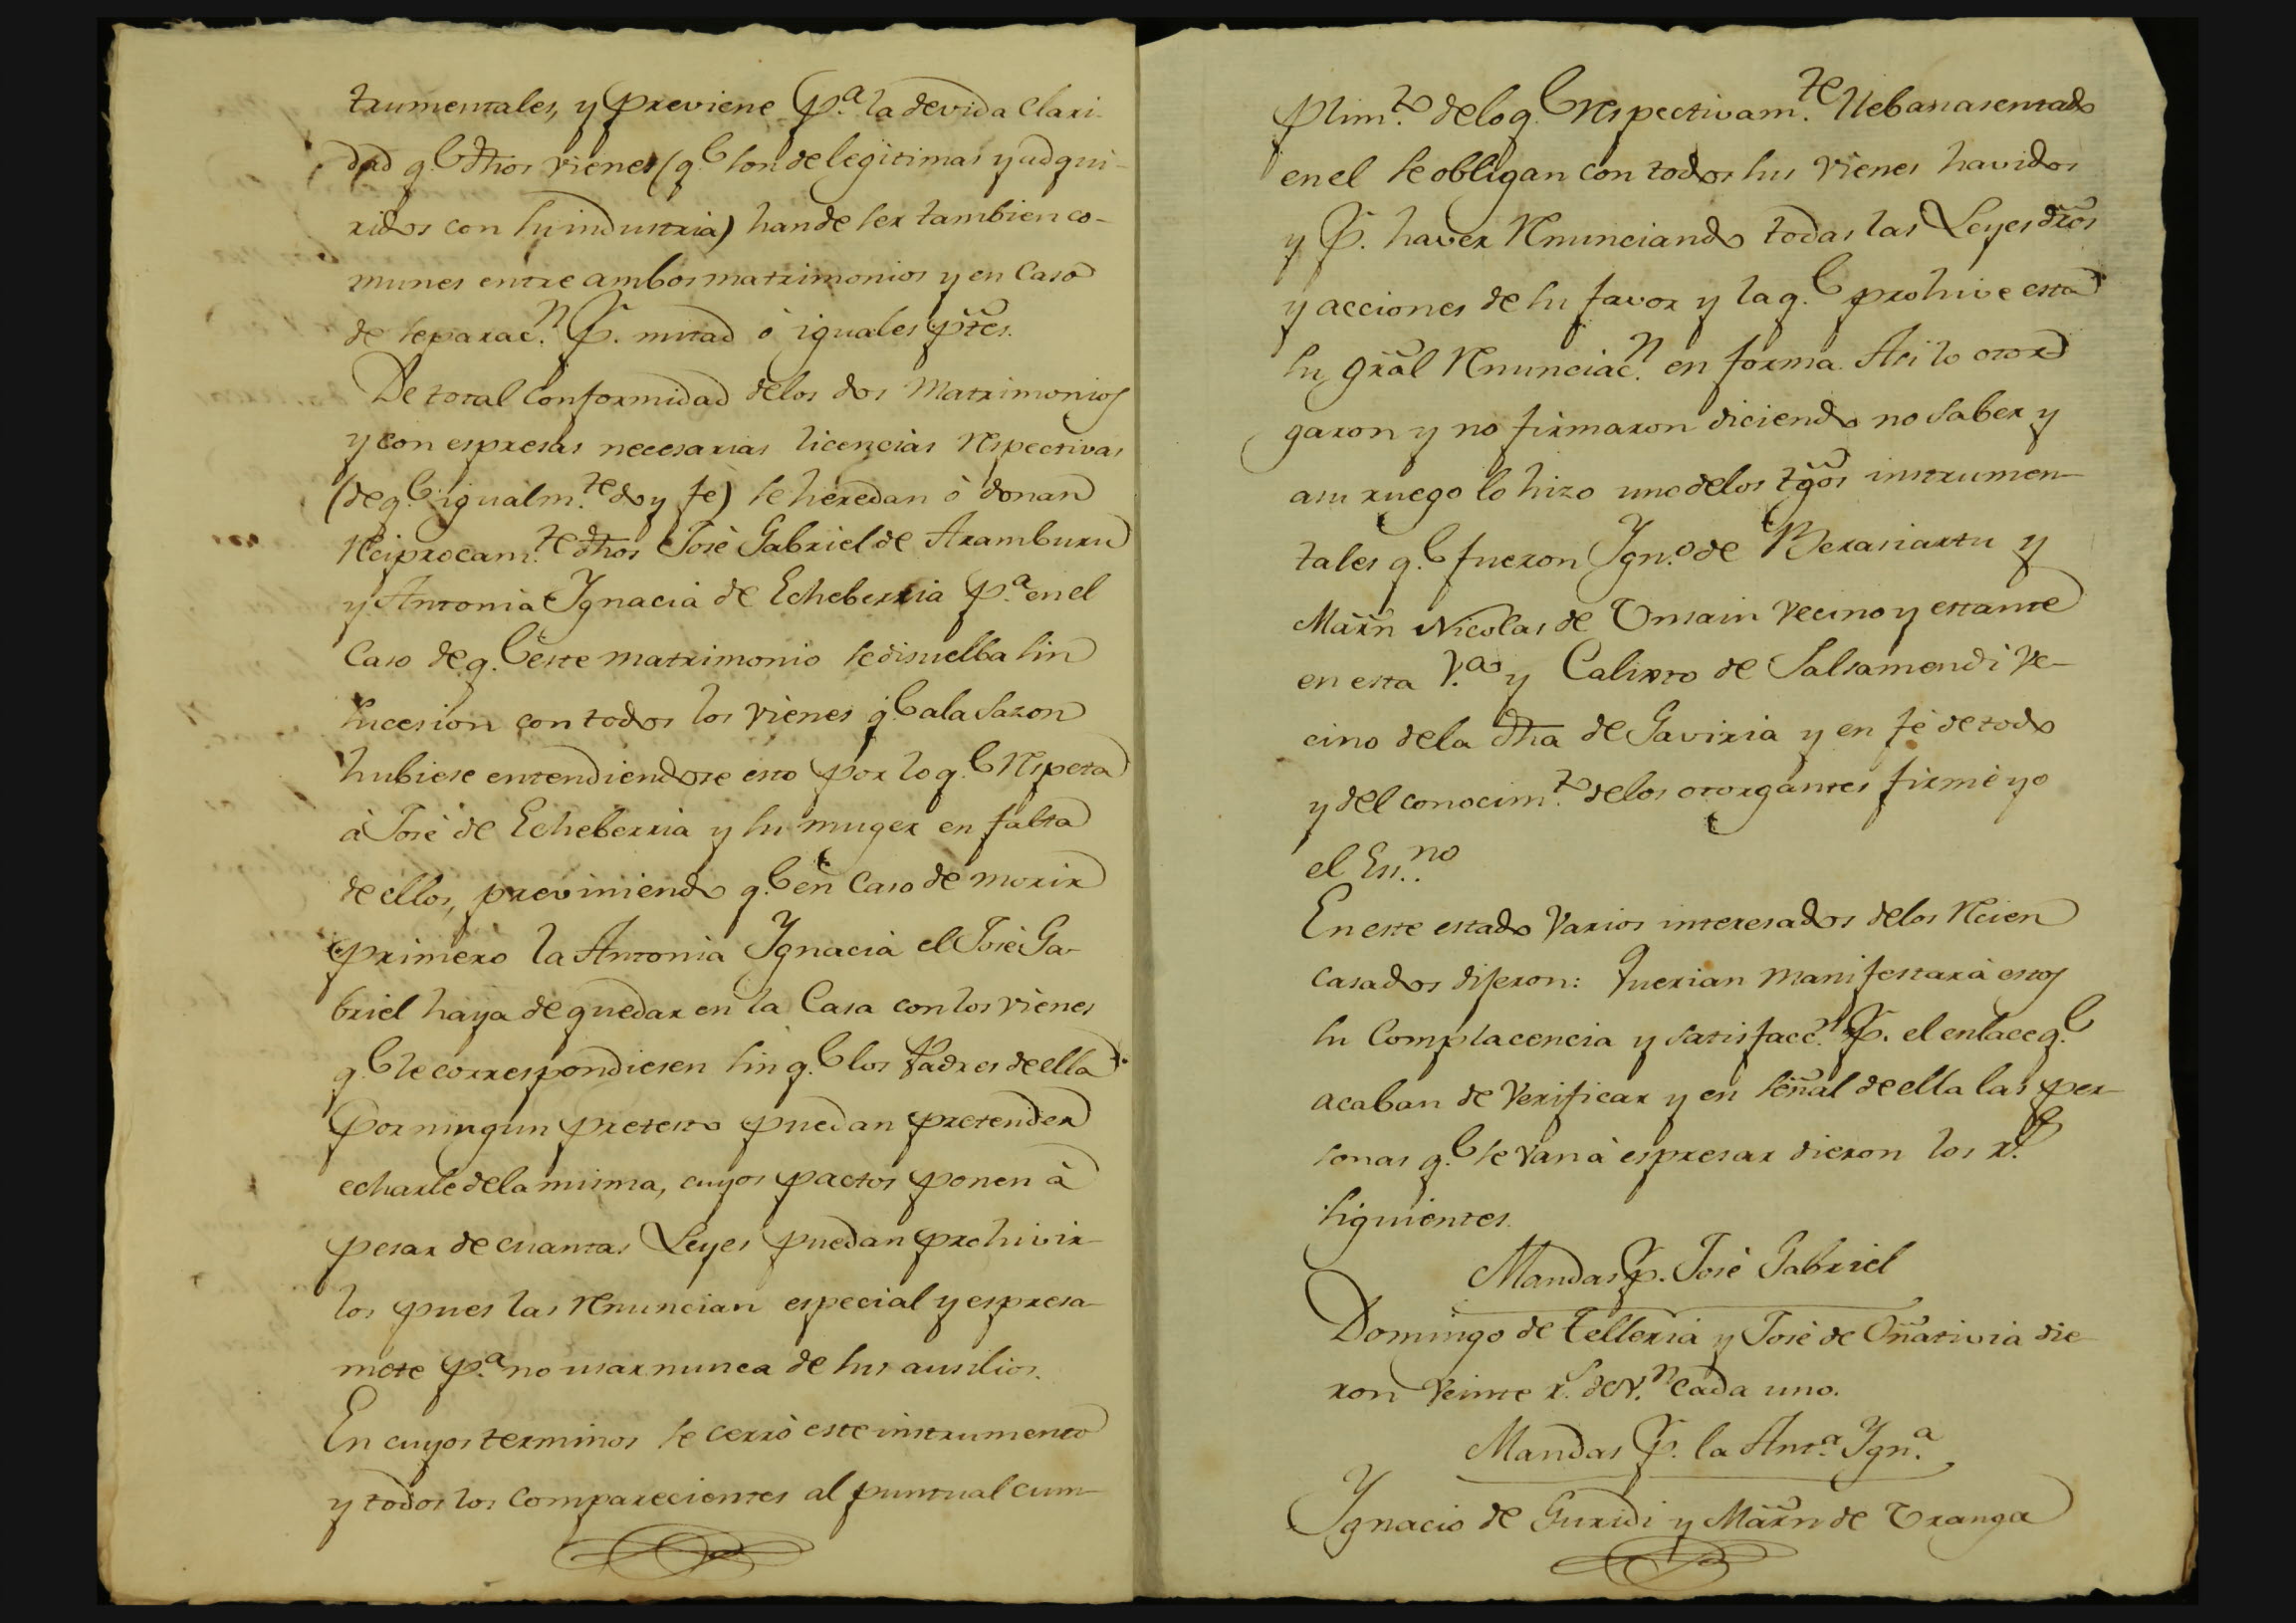 trumentales, y previene p.ª la devida clari-
dad q.e dhos vienes (q.e son de legitimas y adqui-
ridos con su industria) han de ser tambien co-
munes entre ambos matrimonios y en caso
de separac.n p. mitad ó iguales ptes.
De total conformidad de los dos Matrimonios
y con espresas necesarias licencias respectivas
(de q.e igualm.te doy fe) se heredan ó donan
reciprocam.te dhos José Gabriel de Aramburu
y Antonia Ygnacia de Echeberria p.ª en el
caso de q.e este matrimonio se disuelba sin
sucesion con todos los vienes q.e ala sazon
hubiese entendiendose esto por lo q.e respeta
à José de Echeberria y su muger en falta
de ellos, previniendo q.e en caso de morir
primero la Antonia Ygnacia el José Ga-
briel haya de quedar en la Casa con los vienes
q.e le correspondiesen sin q.e los Padres de ella
por ningun pretesto puedan pretender
echarle dela misma, cuyos pactos ponen à
pesar de cuantas Leyes puedan prohivir-
los pues las renuncian especial y espresa-
mete p.ª no usar nunca de sus ausilios.
En cuyos terminos se cerrò este instrumento
y todos los comparecientes al puntual cum-
plim.to delo q.e respectivam.te lleban asentado
en el se obligan con todos sus vienes havidos
y p. haver renunciando todas las Leyes dros
y acciones de su favor y la q.e prohive esta
su gral renunciac.n en forma. Asi lo otor-
garon y no firmaron diciendo no saber y
asu ruego lo hizo uno delos tgos instrumen-
tales q.e fueron Ygn.o de Berasiartu y
Martn Nicolas de Unsain vecino y estante
en esta V.ª y Calixto de Salsamendi ve-
cino dela dha de Gaviria y en fé de todo
y del conocim.to delos otorgantes firmé yo
el Es.no
En este estado varios interesados delos recien
casados dijeron: Querian manifestar à estos
su complacencia y satisfacc.n p. el enlace q.e
acaban de verificar y en señal de ella las per-
sonas q.e se van à espresar dieron los r.s
siguientes.
Mandas p. José Gabriel
Domingo de Telleria y José de Oñativia die-
ron veinte r.s de v.n cada uno.
Mandas p. la Ant.ª Ygn.ª
Ygnacio de Guridi y Martn de Uranga